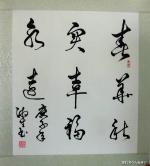 春華秋
实幸福
永遠
庚子年